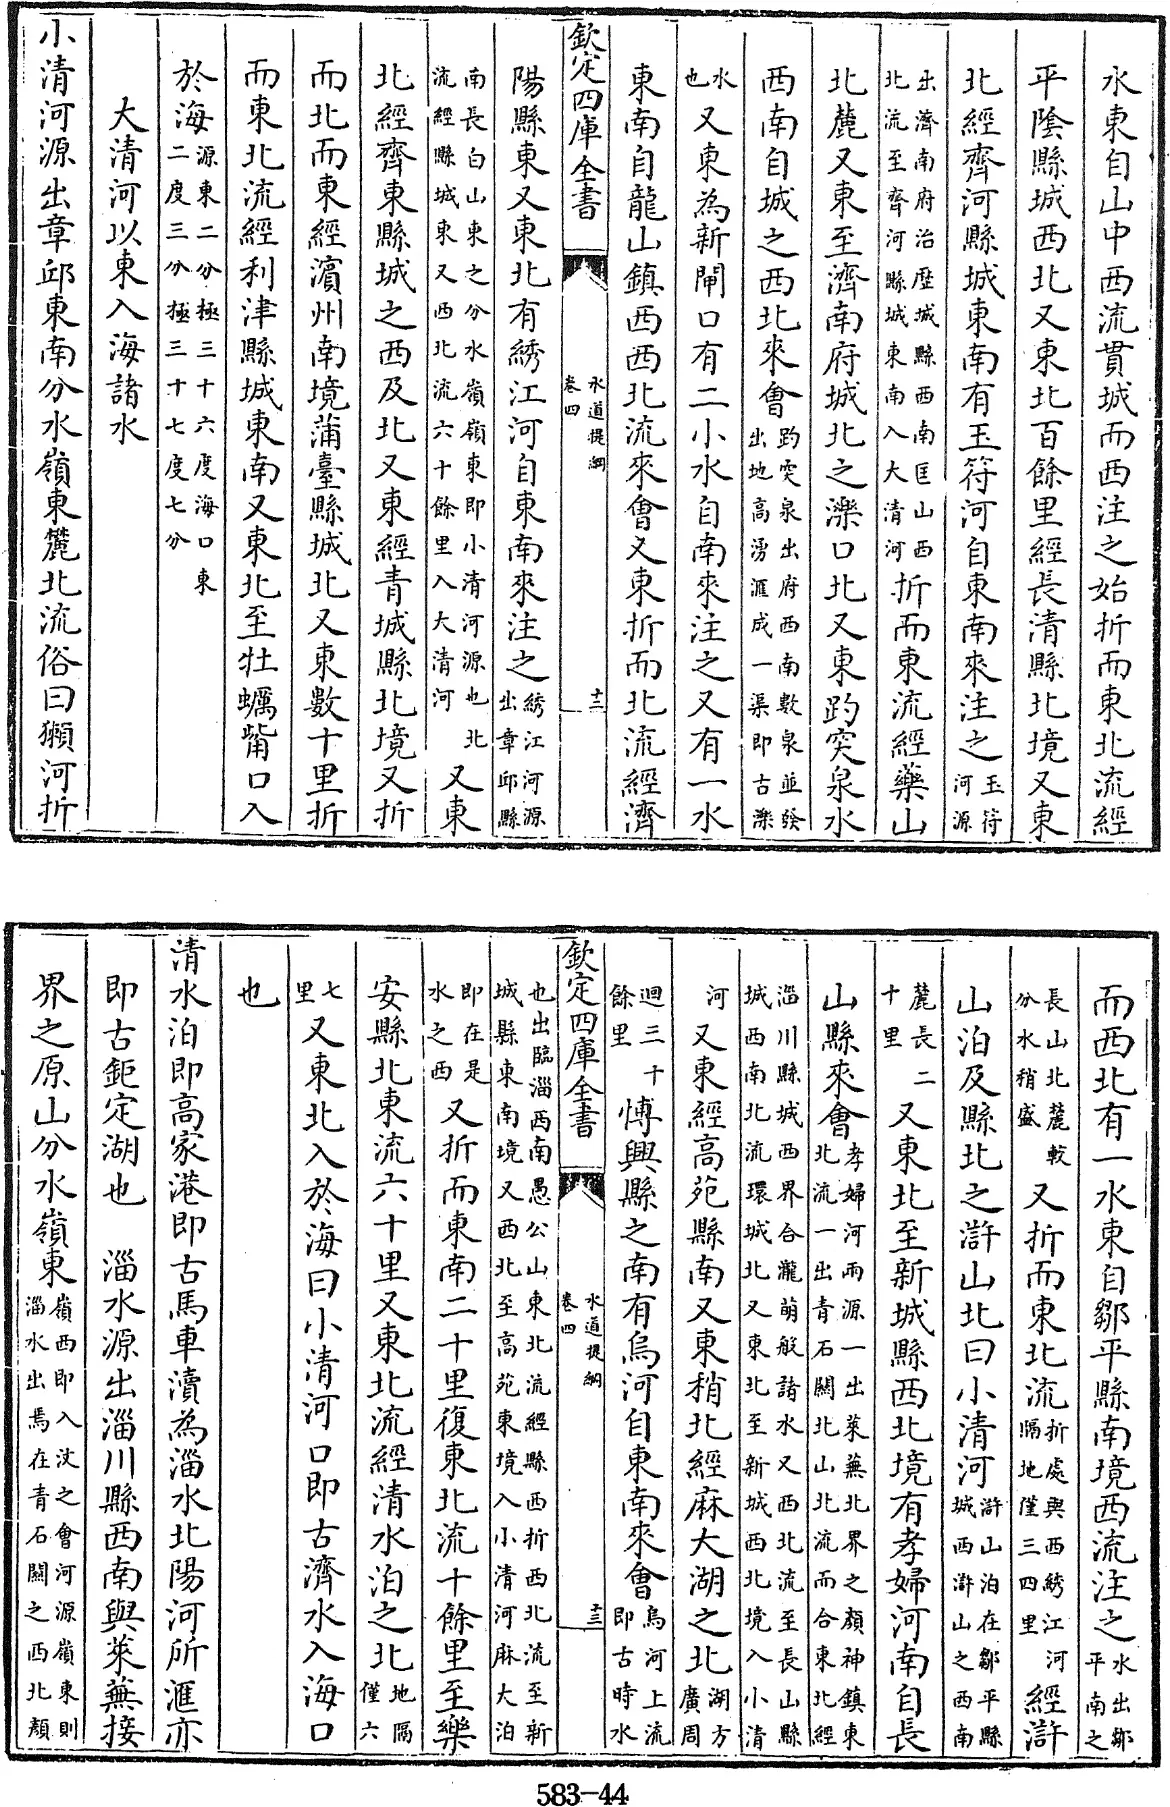 水東自山中西流貫城而西注之始折而東北流經
平陰縣城西北又東北百餘里經長清縣北境又東
北經齊河縣城東南有玉符河自東南來注之玉符河源
出濟南府治歷城縣西南匡山西北流至齊河縣城東南入大清河折而東流經藥山
北麓又東至濟南府城北之濼口北又東趵突泉水
西南自城之西北來會趵突泉出府西南數泉並發出地高湧滙成一渠即古濼
水也又東為新閘口有二小水自南來注之又有一水
東南自龍山鎮西西北流來會又東折而北流經濟
欽定四庫全書
水道提綱
卷四
十二
陽縣東又東北有綉江河自東南來注之綉江河源出章邱縣
南長白山東之分水嶺嶺東即小清河源也北流經縣城東又西北流六十餘里入大清河又東
北經齊東縣城之西及北又東經青城縣北境又折
而北而東經濱州南境蒲臺縣城北又東數十里折
而東北流經利津縣城東南又東北至牡蠣觜口入
於海源東二分極三十六度海口東二度三分極三十七度七分
大清河以東入海諸水
小清河源出章邱東南分水嶺東麓北流俗曰獺河折
而西北有一水東自鄒平縣南境西流注之水出鄒平南之
長山北麓較分水稍盛又折而東北流折處與西綉江河隔地僅三四里經滸
山泊及縣北之滸山北曰小清河滸山泊在鄒平縣城西滸山之西南
麓長二十里又東北至新城縣西北境有孝婦河南自長
山縣來會孝婦河兩源一出萊蕪北界之顏神鎮東北流一出青石關北山北流而合東北經
淄川縣城西界合瀧萌般諸水又西北流至長山縣城西南北流環城北又東北至新城西北境入小清
河又東經高苑縣南又東稍北經麻大湖之北湖方廣周
迴三十餘里博興縣之南有烏河自東南來會烏河上流即古時水
欽定四庫全書
水道提綱
卷四
十三
也出臨淄西南愚公山東北流經縣西折西北流至新城縣東南境又西北至高苑東境入小清河麻大泊
即在是水之西又折而東南二十里復東北流十餘里至樂
安縣北東流六十里又東北流經清水泊之北地隔僅六
七里又東北入於海曰小清河口即古濟水入海口
也
清水泊即高家港即古馬車瀆為淄水北陽河所滙亦
即古鉅定湖也　淄水源出淄川縣西南與萊蕪接
界之原山分水嶺東嶺西即入汶之會河源嶺東則淄水出焉在青石關之西北顏
583-44